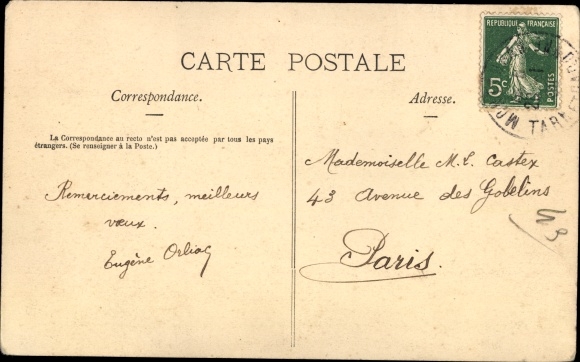 CARTE POSTALE
Correspondance.
La Correspondance au recto n'est pas acceptée par tous les pays
étrangers. (Se renseigner à la Poste.)
Remerciements, meilleurs
vœux.
Eugène Orliac
Adresse.
REPUBLIQUE FRANÇAISE
5c
POSTES
TARN
Mademoiselle M. L. Castex
43 Avenue des Gobelins
Paris.